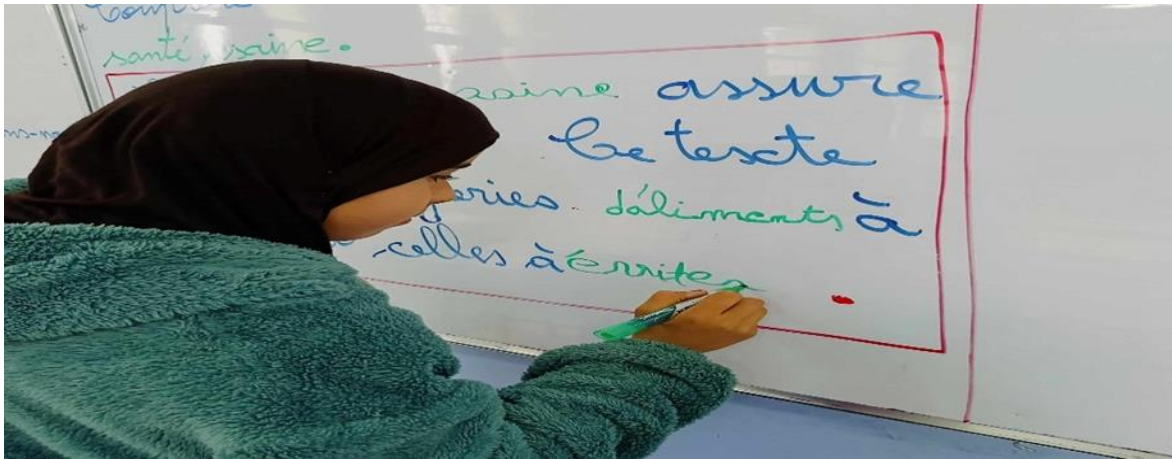 santé, saine.
saine assure
Ce texte
d'aliments à
celles à érriter